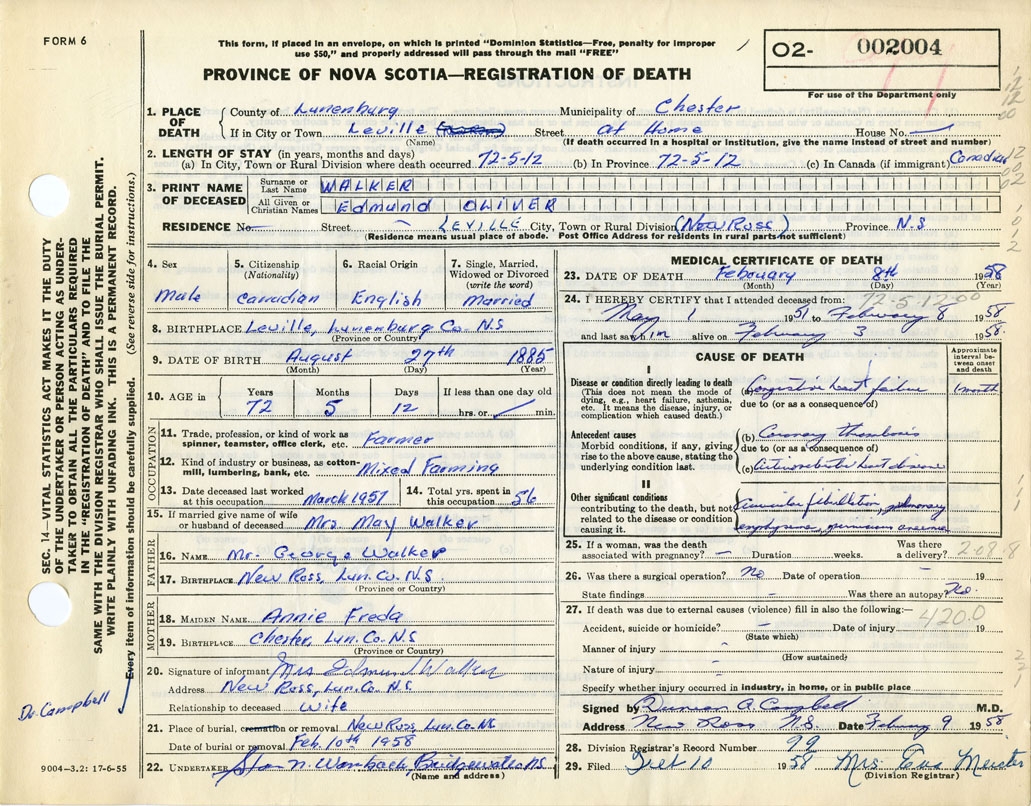 FORM 6
This form, if placed in an envelope, on which is printed "Dominion Statistics—Free, penalty for improper
use $50," and properly addressed will pass through the mail "FREE"
O2- 002004
For use of the Department only
PROVINCE OF NOVA SCOTIA—REGISTRATION OF DEATH
SEC. 14—VITAL STATISTICS ACT MAKES IT THE DUTY
OF THE UNDERTAKER OR PERSON ACTING AS UNDER-
TAKER TO OBTAIN ALL THE PARTICULARS REQUIRED
IN THE "REGISTRATION OF DEATH" AND TO FILE THE
SAME WITH THE DIVISION REGISTRAR WHO SHALL ISSUE THE BURIAL PERMIT.
WRITE PLAINLY WITH UNFADING INK. THIS IS A PERMANENT RECORD.
Every item of information should be carefully supplied. (See reverse side for instructions.)
Dr. Campbell
9004—3.2: 17-6-55
1. PLACE OF DEATH
County of Lunenburg Municipality of Chester
If in City or Town Leville Street At Home House No. —
(Name) (If death occurred in a hospital or institution, give the name instead of street and number)
2. LENGTH OF STAY (in years, months and days)
(a) In City, Town or Rural Division where death occurred 72-5-12 (b) In Province 72-5-12 (c) In Canada (if immigrant) Canadian
3. PRINT NAME OF DECEASED
Surname or Last Name WALKER
All Given or Christian Names Edmund OLIVER
RESIDENCE No. — Street — LEVILLE City, Town or Rural Division (New Ross) Province N.S
(Residence means usual place of abode. Post Office Address for residents in rural parts not sufficient)
4. Sex Male
5. Citizenship (Nationality) Canadian
6. Racial Origin English
7. Single, Married, Widowed or Divorced (write the word) Married
8. BIRTHPLACE Leville, Lunenburg Co. N.S
(Province or Country)
9. DATE OF BIRTH August 27th 1885
(Month) (Day) (Year)
10. AGE in Years 72 Months 5 Days 12 If less than one day old hrs. or min.
OCCUPATION
11. Trade, profession, or kind of work as spinner, teamster, office clerk, etc. Farmer
12. Kind of industry or business, as cotton-mill, lumbering, bank, etc. Mixed Farming
13. Date deceased last worked at this occupation March 1957
14. Total yrs. spent in this occupation 56
15. If married give name of wife or husband of deceased Mrs. May Walker
FATHER
16. NAME Mr. George Walker
17. BIRTHPLACE New Ross, Lun. Co. N.S.
(Province or Country)
MOTHER
18. MAIDEN NAME Annie Freda
19. BIRTHPLACE Chester, Lun. Co. N.S
(Province or Country)
20. Signature of informant Mrs Edmund Walker
Address New Ross, Lun. Co. N.S
Relationship to deceased wife
21. Place of burial, cremation or removal New Ross, Lun. Co. NS
Date of burial or removal Feb. 10th 1958
22. UNDERTAKER N. Bridgewater NS
(Name and address)
MEDICAL CERTIFICATE OF DEATH
23. DATE OF DEATH Febuary 8th 1958
(Month) (Day) (Year)
24. I HEREBY CERTIFY that I attended deceased from: 72-5-12 00
May 1 1951 to February 8 1958
and last saw him alive on February 3 1958
CAUSE OF DEATH
Approximate interval between onset and death
I
Disease or condition directly leading to death
(This does not mean the mode of dying, e.g., heart failure, asthenia, etc. It means the disease, injury, or complication which caused death.)
(a) Congestive heart failure 1 month
due to (or as a consequence of)
Antecedent causes
Morbid conditions, if any, giving rise to the above cause, stating the underlying condition last.
(b) Coronary thrombosis
due to (or as a consequence of)
(c) Arteriosclerotic heart disease
II
Other significant conditions
contributing to the death, but not related to the disease or condition causing it.
Auricular fibrillation, pulmonary
emphysema, pernicious anaemia
25. If a woman, was the death associated with pregnancy? — Duration weeks. Was there a delivery?
26. Was there a surgical operation? No Date of operation — 19
State findings — Was there an autopsy? No.
27. If death was due to external causes (violence) fill in also the following:—
420.0
Accident, suicide or homicide? — Date of injury 19
(State which)
Manner of injury -
(How sustained)
Nature of injury -
Specify whether injury occurred in industry, in home, or in public place
Signed by Duncan A. Campbell M.D.
Address New Ross N.S. Date February 9 1958
28. Division Registrar's Record Number 99
29. Filed Feb 10 1958 Mrs. Eva Meister
(Division Registrar)